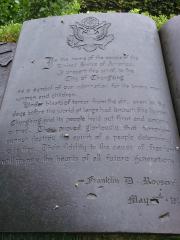 In the name of the people of the
United States of America,
I present this scroll to the
City of Chungking
as a symbol of our admiration for its brave men,
women and children.
Under blasts of terror from the air, even in the
days before the world at large had known this horror,
Chungking and its people held out firm and
They proved gloriously that
cannot destroy the spirit of a people determined
Their fidelity to the cause of freedom
will inspire the hearts of all future generations.
Franklin D. Roosev
May 1